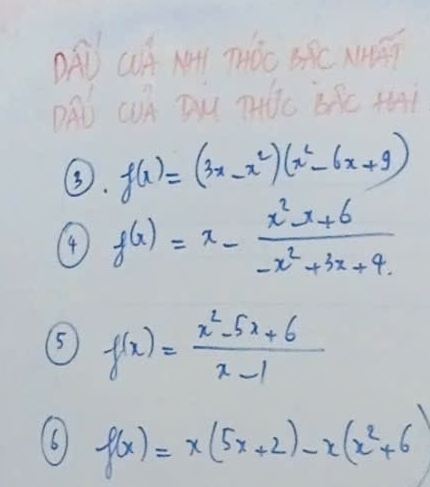 DẤU CỦA NHỊ THỨC BẬC NHẤT
DẤU CỦA TAM THỨC BẬC HAI
③. f(x) = (3x - x²)(x² - 6x + 9)
④ f(x) = x - (x² - x + 6)/(-x² + 3x + 4).
⑤ f(x) = (x² - 5x + 6)/(x - 1)
⑥ f(x) = x(5x + 2) - x(x² + 6)